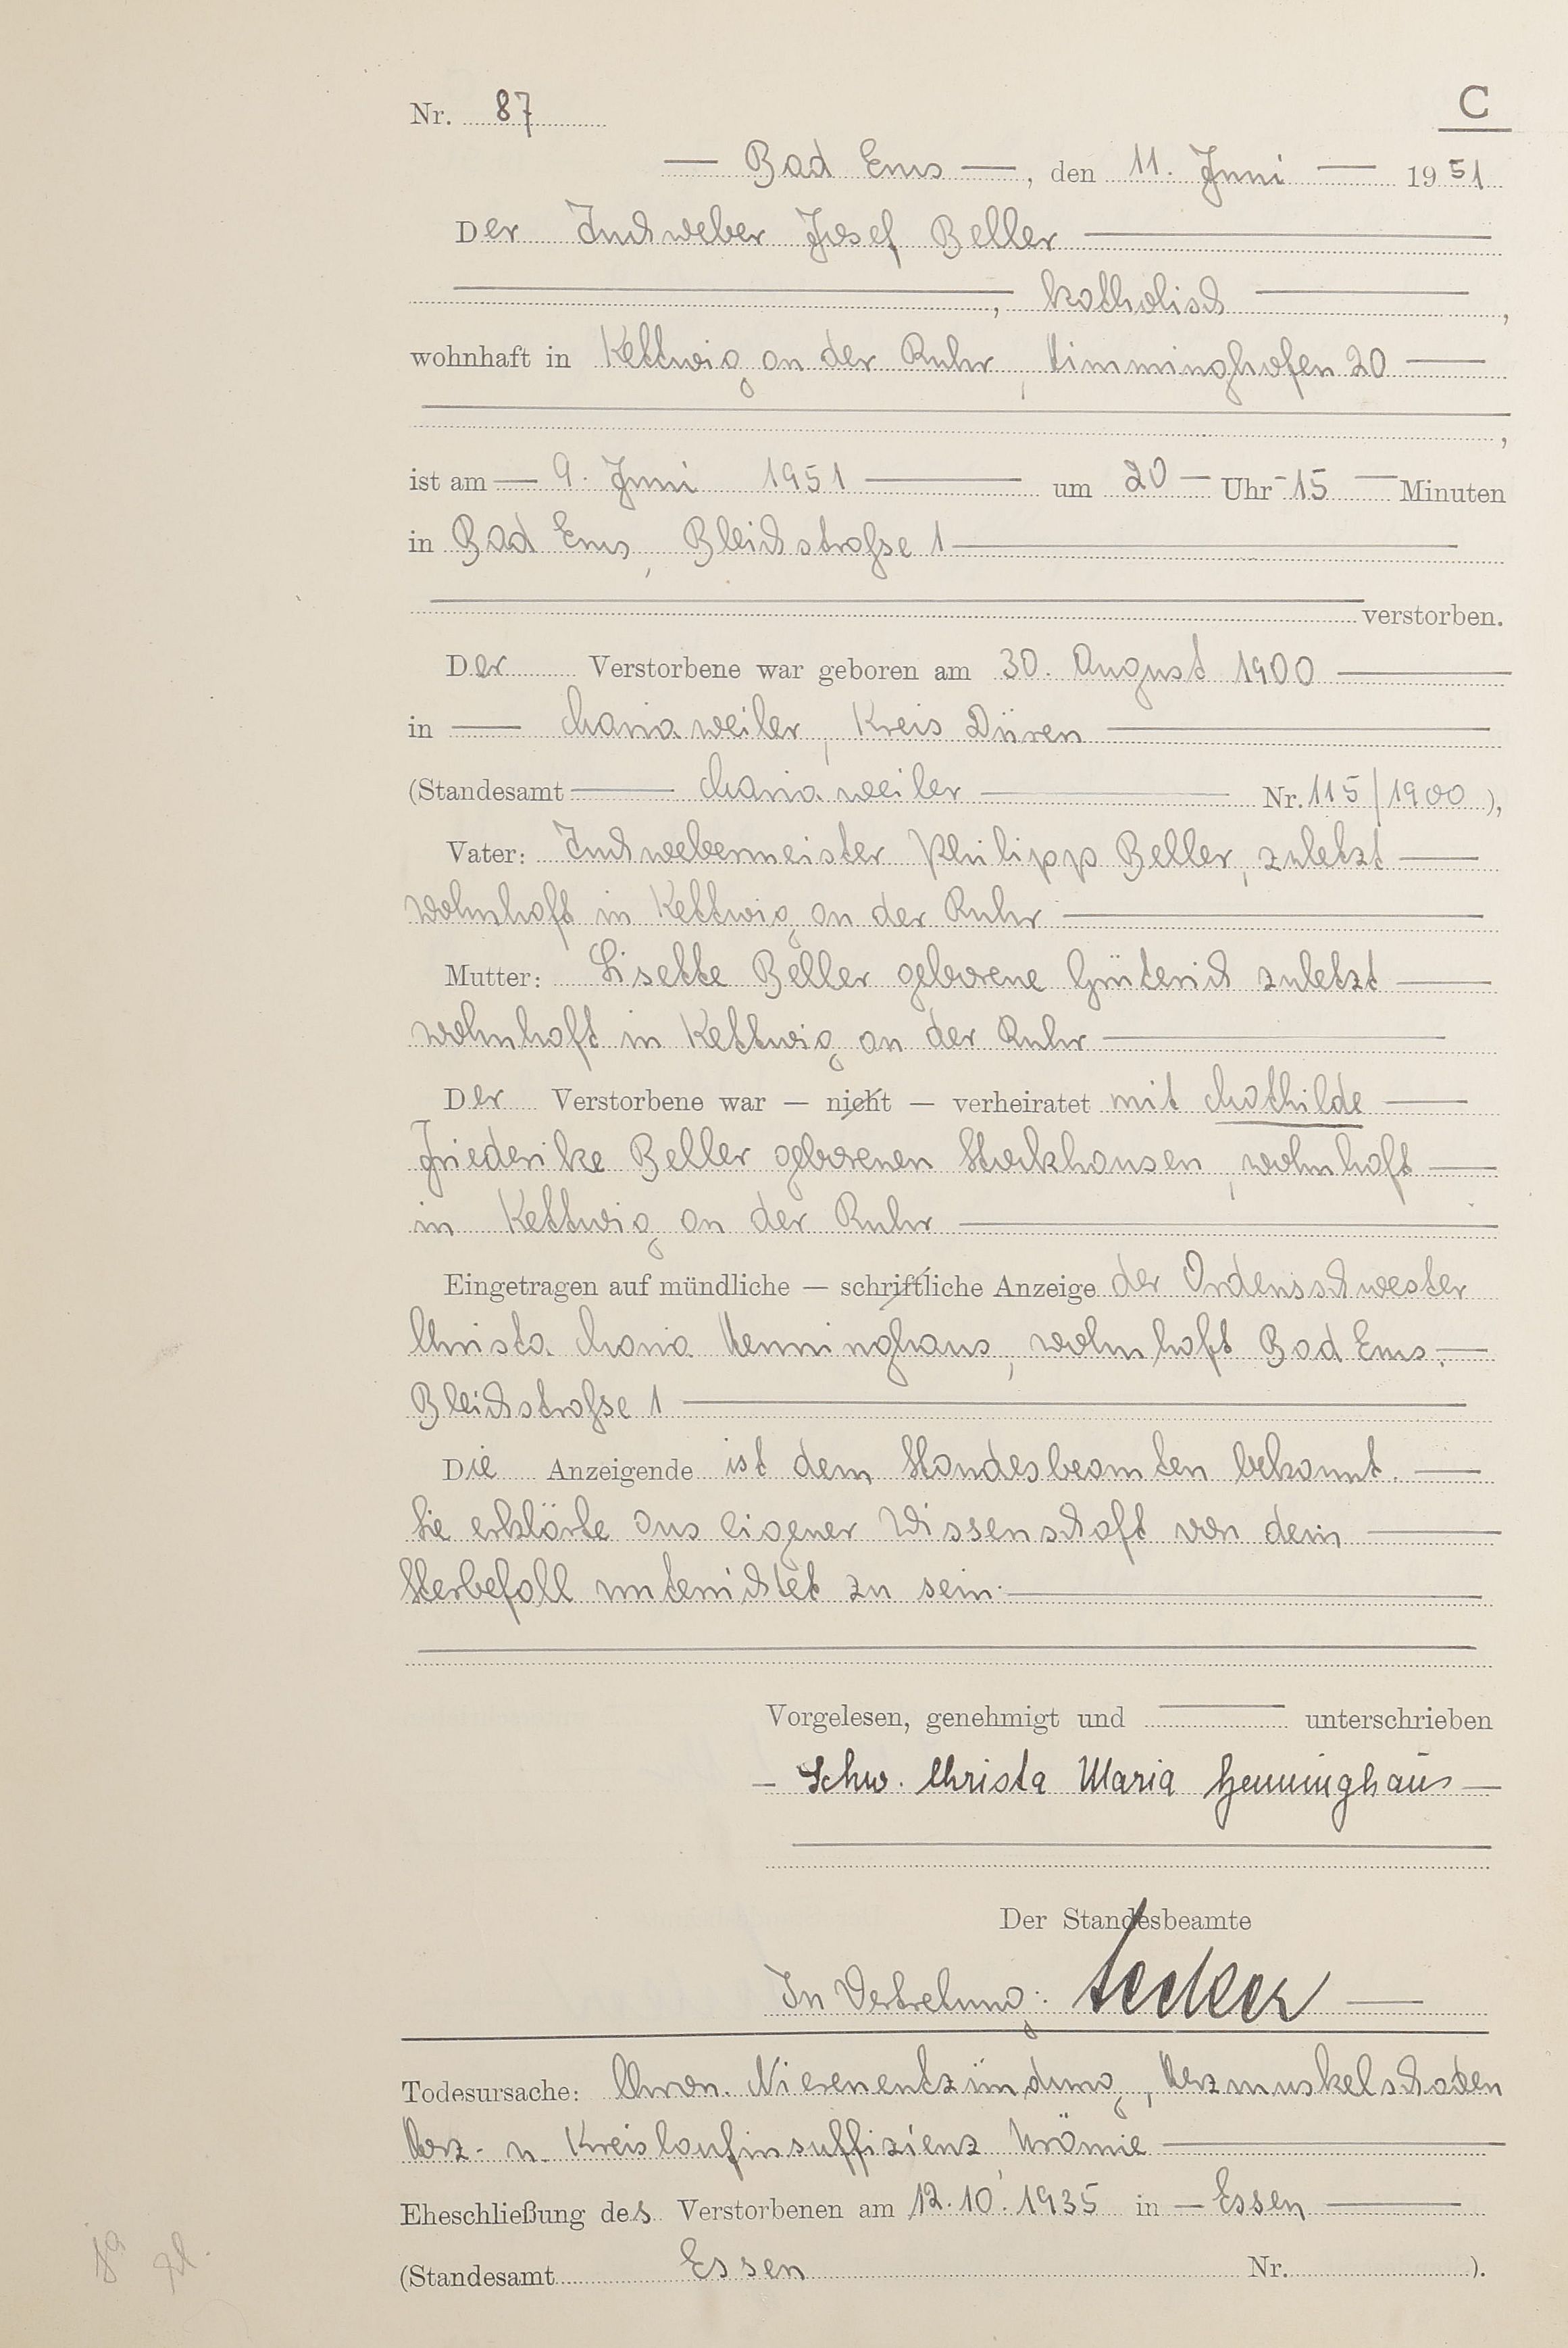 Nr. 87
C
— Bad Ems —, den 11. Juni — 1951
Der Tuchweber Josef Beller —
—, katholisch —,
wohnhaft in Kettwig an der Ruhr, Himminghofen 20 —
—,
ist am — 9. Juni 1951 — um 20 — Uhr - 15 — Minuten
in Bad Ems, Bleichstraße 1 —
— verstorben.
Der Verstorbene war geboren am 30. August 1900 —
in — Mariaweiler, Kreis Düren —
(Standesamt — Mariaweiler — Nr. 115/1900),
Vater: Tuchwebermeister Philipp Beller, zuletzt —
wohnhaft in Kettwig an der Ruhr —
Mutter: Lisette Beller geborene Güterich zuletzt —
wohnhaft in Kettwig an der Ruhr —
Der Verstorbene war — nicht — verheiratet mit Mathilde —
Friederike Beller geborenen Stockhausen, wohnhaft —
in Kettwig an der Ruhr —
Eingetragen auf mündliche — schriftliche Anzeige der Ordensschwester
Christa Maria Henninghaus, wohnhaft Bad Ems, —
Bleichstraße 1 —
Die Anzeigende ist dem Standesbeamten bekannt. —
Sie erklärte aus eigener Wissenschaft von dem —
Sterbefall unterrichtet zu sein. —
Vorgelesen, genehmigt und — unterschrieben
— Schw. Christa Maria Henninghaus —
Der Standesbeamte
In Vertretung: —
Todesursache: Chron. Nierenentzündung, Herzmuskelschaden
Herz- u. Kreislaufinsuffizienz, Urämie —
Eheschließung des Verstorbenen am 12.10.1935 in — Essen —
(Standesamt Essen Nr. ).